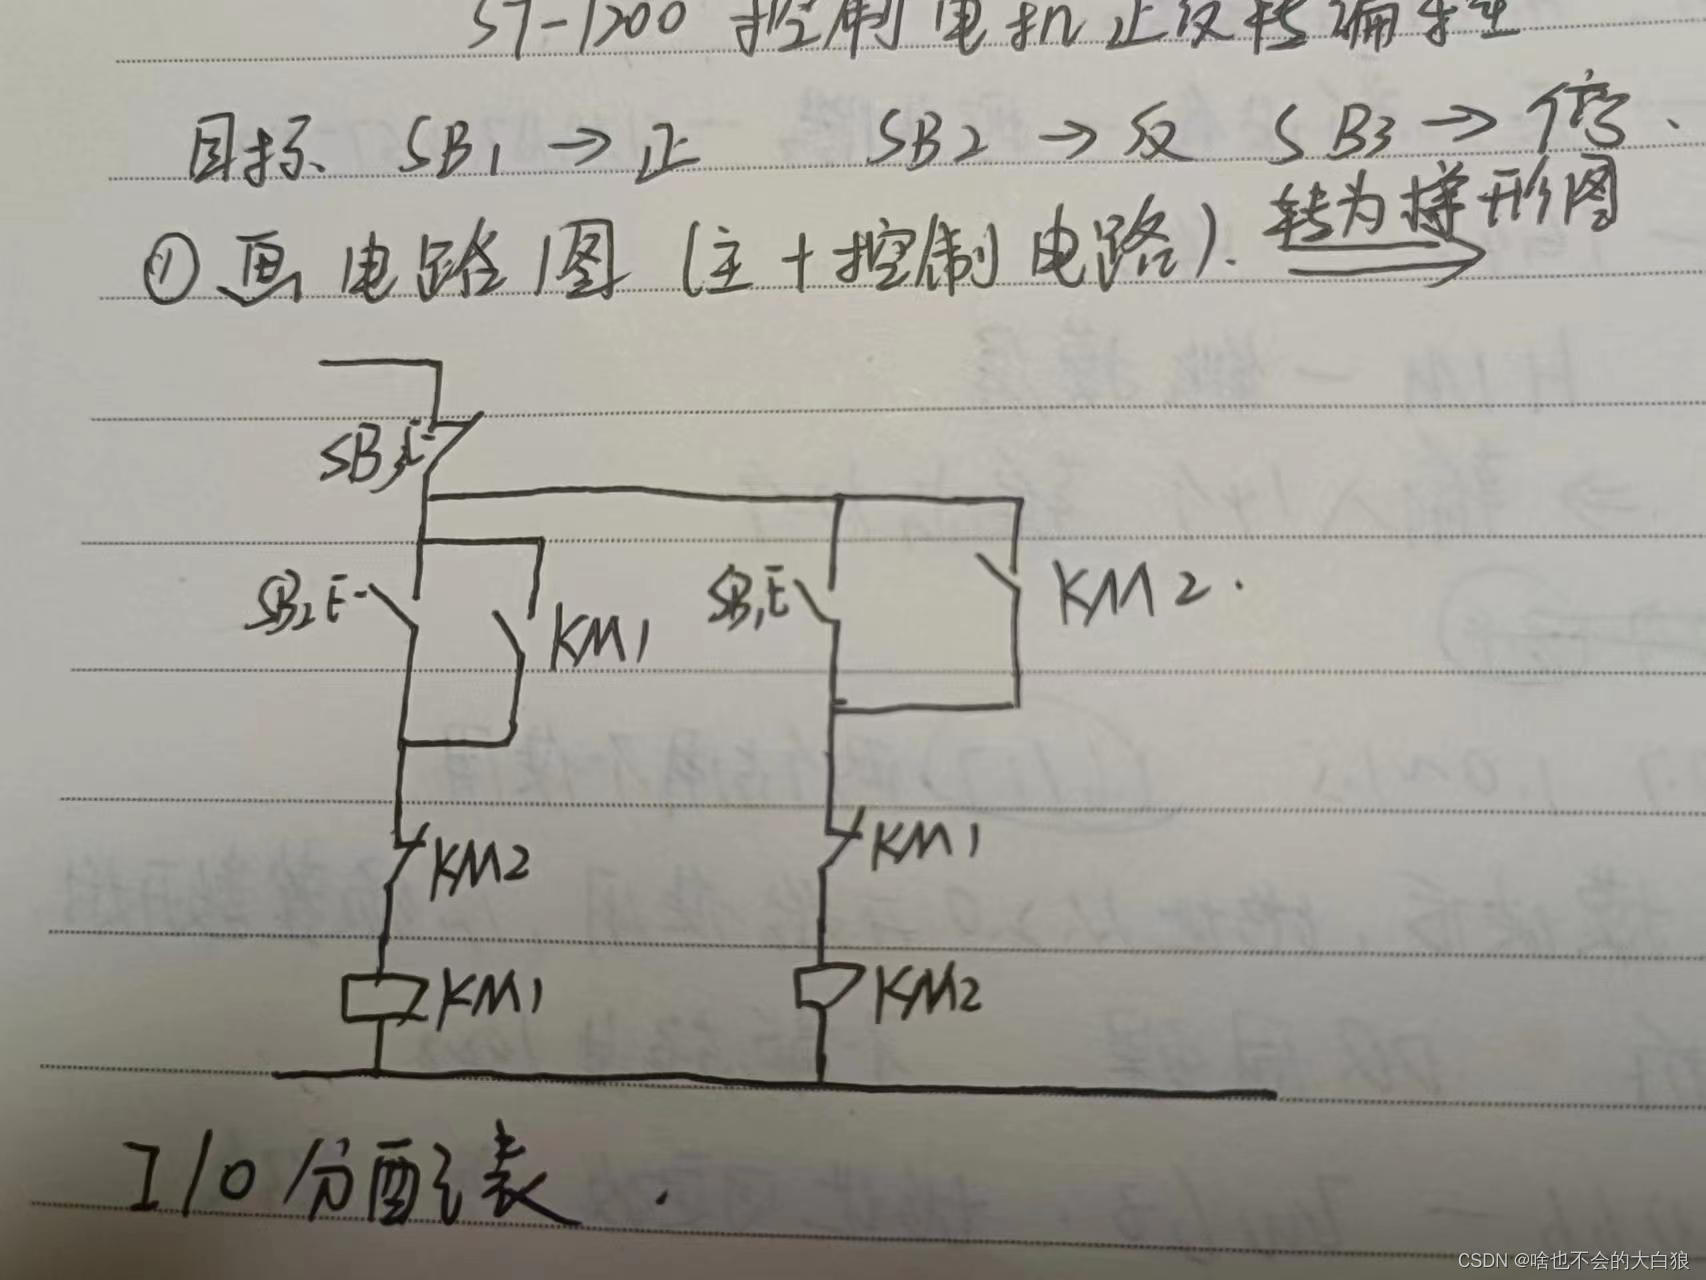 S7-1200 控制电机正反转编程
目标 SB1 → 正 SB2 → 反 SB3 → 停、
① 画电路图 (主+控制电路). 转为梯形图
SB3
SB2 KM1 SB1 KM2.
KM2 KM1
KM1 KM2
I/O 分配表.
CSDN @啥也不会的大白狼